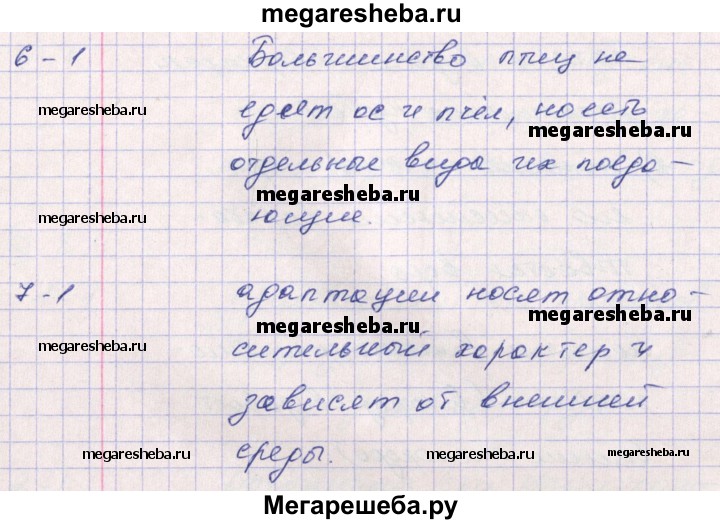 megaresheba.ru
6 - 1 Большинство птиц не
едят ос и пчёл, но есть
megaresheba.ru megaresheba.ru
отдельные виды их поеда -
megaresheba.ru
megaresheba.ru ющие.
7 - 1 адаптации носят отно -
megaresheba.ru megaresheba.ru
megaresheba.ru сительный характер и
зависят от внешней
megaresheba.ru среды. megaresheba.ru
Мегарешеба.ру